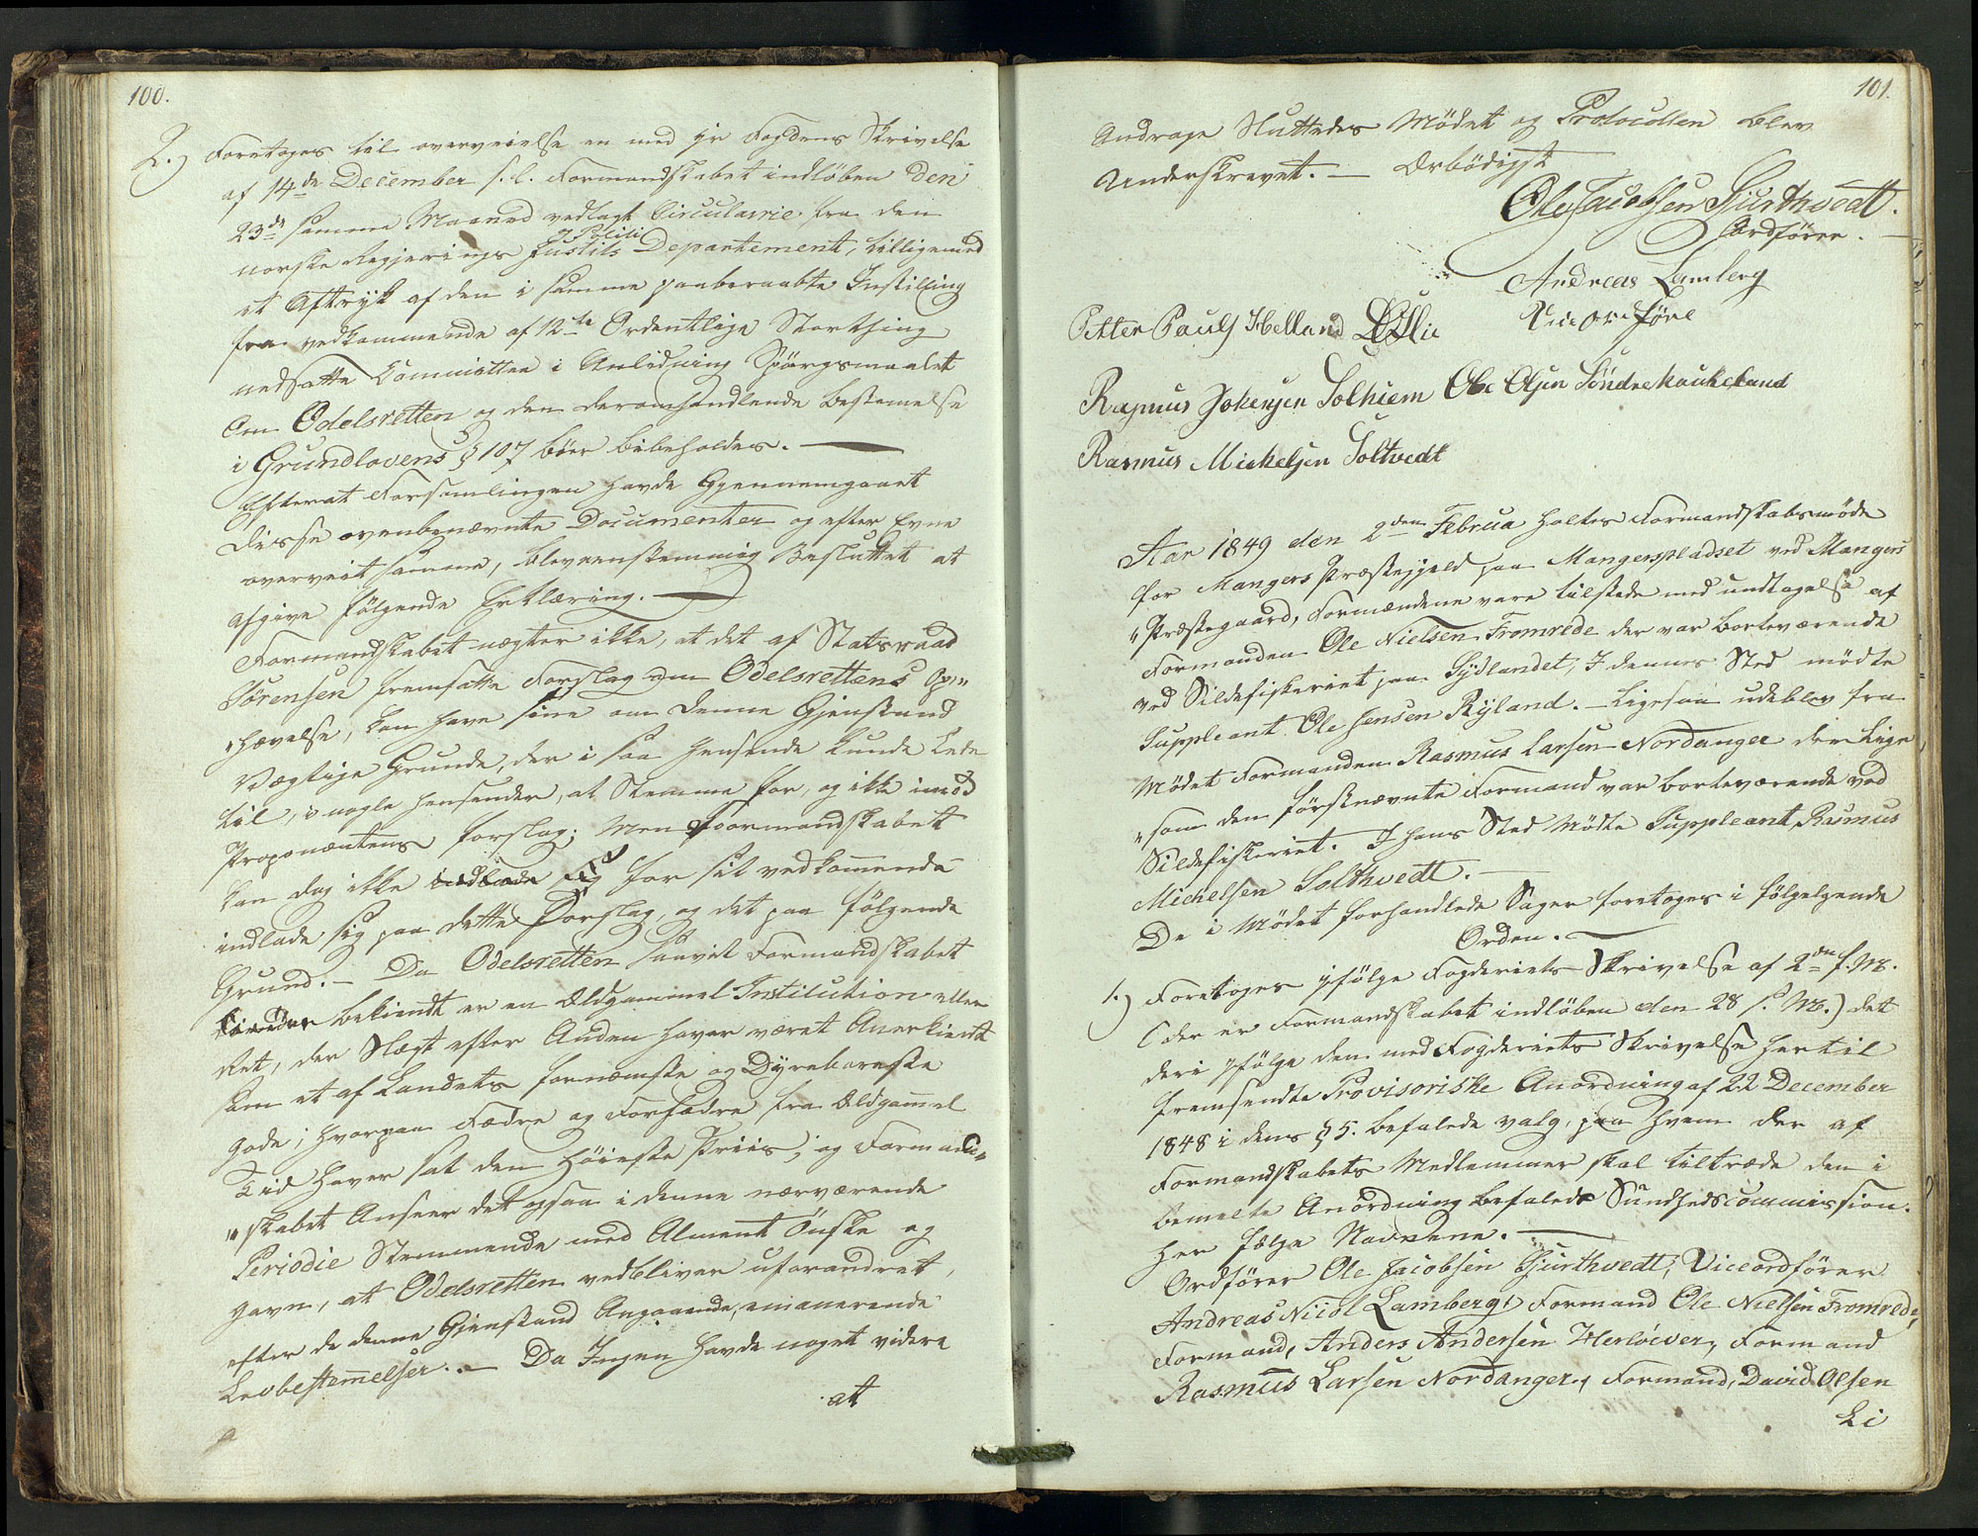 100.
2.) Foretoges til overveielse en med hr Fogdens Skrivelse
af 14de December f. A. Formandskabet indløben den
23de samme Maaned vedlagt Circulairie fra den
norske Regjerings Justits og Politi Departement, tilligemed
et Aftryk af den i samme paaberaabte Instilling
fra vedkommende af 12te Ordentlige Storthing
nedsatte Committee i Anledning Spørgsmaalet
Om Odelsretten og den deromhandlende bestemelse
i Grundlovens § 107 bør bibeholdes. —
Efterat Forsamlingen havde Gjennemgaaet
disse ovenbenævnte Documenter og efter Evne
overveiet samme, blev eenstemmig Besluttet at
afgive følgende Erklæring. —
Formandskabet nægter ikke, at det af Statsraad
Sørensen fremsatte Forslag om Odelsrettens Op„
„hævelse, kan have sine om denne Gjenstand
Vægtige Grunde, der i saa henseende kunde Lede
til, i nogle henseender, at Stemme for, og ikke imod
Proponentens forslag; Men Formandskabet
kan dog ikke indlade sig for sit vedkommende
indlade sig paa dette Forslag, og det paa følgende
Grund. — Da Odelsretten saavit Formandskabet
bekiendt er en Eldgammel Institution eller
Ret, der Slægt efter Anden haver været Anerkiendt
som et af Landets fornemste og Dyrebareste
gode; hvorpaa Fædre og Forfædre fra Eldgammel
Tid haver sat den Høieste Priis; og Formand„
„skabet Anseer det ogsaa i denne nærværende
Periodie Stemmende med Alment Ønske og
gavn, at Odelsretten vedbliver uforandret,
efter de denne Gjenstand Angaaende, emanerende
Lovbestemelser. — Da Ingen havde noget videre
at
101.
Andrage Sluttedes Mødet og Protocollen blev
Underskrevet. — Ærbødigst
Ole Jacobsen Hjurthvedt.
Ordfører. —
Andreas Lamberg
Viceordføre
Petter Pauls Helland DOLie
Rasmus Johensen Solhiem Ole Olsen Søndre Kaukeland
Rasmus Mickelsen Soltvedt
Aar 1849 den 2den Februa holtes Formandskabsmøde
for Mangers Præstegjeld paa Mangerspladset ved Mangers
„Præstegaard, Formændene vare tilstede med undtagelse af
Formanden Ole Nielsen Fromrede der var borteværende
ved Sildefiskeriet paa Sydlandet, I dennes Sted mødte
Suppleant Ole Jensen Ryland. — Ligesaa udeblev fra
Mødet Formanden Rasmus Larsen Nordanger der lige
„som den førstnævnte Formand var borteværende ved
Sildefiskeriet. I hans Sted Mødte Suppleant Rasmus
Michelsen Solthvedt. —
De i Mødet forhandlede Sager foretoges i følgelgende
Orden. —
1.) Foretoges ifølge Fogderiets Skrivelse af 2den f. M.
(der er Formandskabet indløben den 28 s. M.) det
deri ifølge den med Fogderiets Skrivelse hertil
fremsendte Provisoriske Anordning af 22 December
1848 i dens § 5. befalede valg, paa hvem der af
Formandskabets Medlemmer skal tiltræde den i
bemelte Anordning befalede Sundhedscommission.
her følge Navnene. —
Ordfører Ole Jacobsen Hjurthvedt, Viceordfører
Andreas Nicol Lamberg, Formand Ole Nielsen Fromrede,
Formand, Anders Andersen Herløever, Formand
Rasmus Larsen Nordanger, Formand, David Olsen
Li